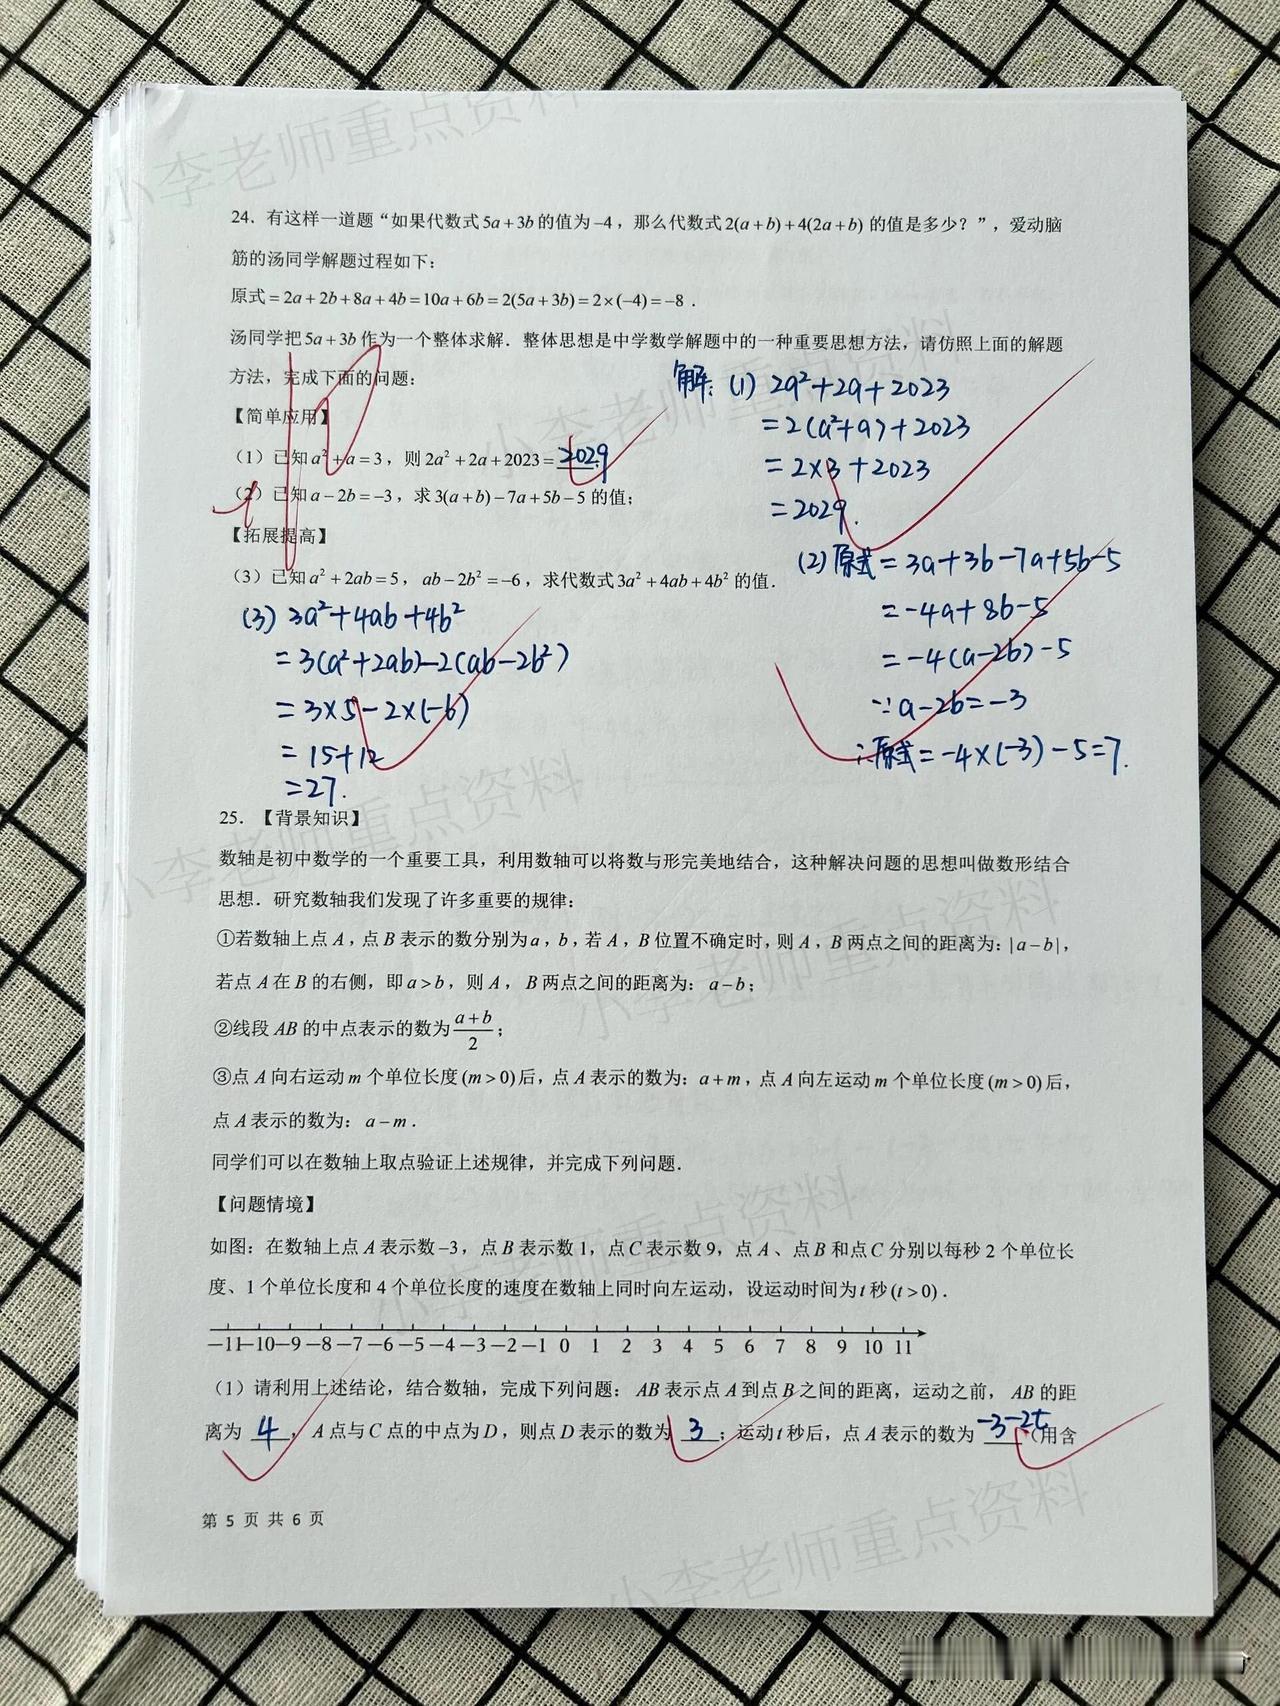 24．有这样一道题“如果代数式5a+3b的值为-4，那么代数式2(a+b)+4(2a+b)的值是多少？”，爱动脑
筋的汤同学解题过程如下：
原式=2a+2b+8a+4b=10a+6b=2(5a+3b)=2×(-4)=-8．
汤同学把5a+3b作为一个整体求解．整体思想是中学数学解题中的一种重要思想方法，请仿照上面的解题
方法，完成下面的问题：
【简单应用】
（1）已知a²+a=3，则2a²+2a+2023=2029
（2）已知a-2b=-3，求3(a+b)-7a+5b-5的值；
【拓展提高】
（3）已知a²+2ab=5，ab-2b²=-6，求代数式3a²+4ab+4b²的值．
解：(1) 2a²+2a+2023
=2(a²+a)+2023
=2×3+2023
=2029.
(2)原式=3a+3b-7a+5b-5
=-4a+8b-5
=-4(a-2b)-5
∵a-2b=-3
∴原式=-4×(-3)-5=7.
(3) 3a²+4ab+4b²
=3(a²+2ab)-2(ab-2b²)
=3×5-2×(-6)
=15+12
=27.
25．【背景知识】
数轴是初中数学的一个重要工具，利用数轴可以将数与形完美地结合，这种解决问题的思想叫做数形结合
思想．研究数轴我们发现了许多重要的规律：
①若数轴上点A，点B表示的数分别为a，b，若A，B位置不确定时，则A，B两点之间的距离为：|a-b|，
若点A在B的右侧，即a>b，则A，B两点之间的距离为：a-b；
②线段AB的中点表示的数为(a+b)/2；
③点A向右运动m个单位长度(m>0)后，点A表示的数为：a+m，点A向左运动m个单位长度(m>0)后，
点A表示的数为：a-m．
同学们可以在数轴上取点验证上述规律，并完成下列问题．
【问题情境】
如图：在数轴上点A表示数-3，点B表示数1，点C表示数9，点A、点B和点C分别以每秒2个单位长
度、1个单位长度和4个单位长度的速度在数轴上同时向左运动，设运动时间为t秒(t>0)．
-11-10-9-8-7-6-5-4-3-2-1 0 1 2 3 4 5 6 7 8 9 10 11
（1）请利用上述结论，结合数轴，完成下列问题：AB表示点A到点B之间的距离，运动之前，AB的距
离为 4 ，A点与C点的中点为D，则点D表示的数为 3 ；运动t秒后，点A表示的数为 -3-2t（用含
第 5 页 共 6 页
小李老师重点资料
小李老师重点资料
小李老师重点资料
小李老师重点资料
小李老师重点资料
小李老师重点资料